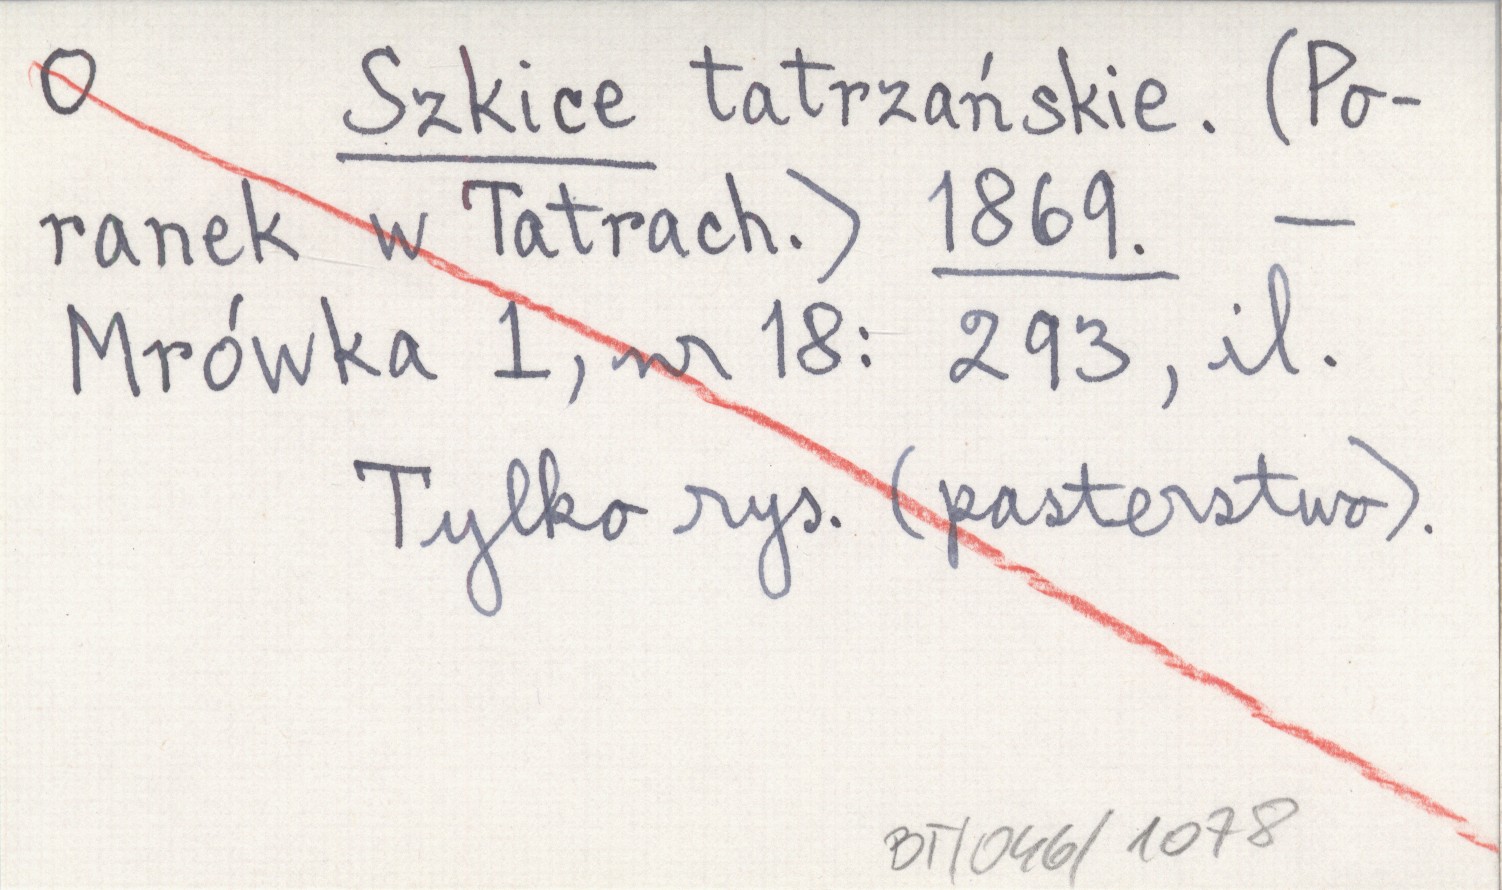 O Szkice tatrzańskie. (Po-
ranek w Tatrach.) 1869. —
Mrówka 1, nr 18: 293, il.
Tylko rys. (pasterstwo).
BT/046/1078